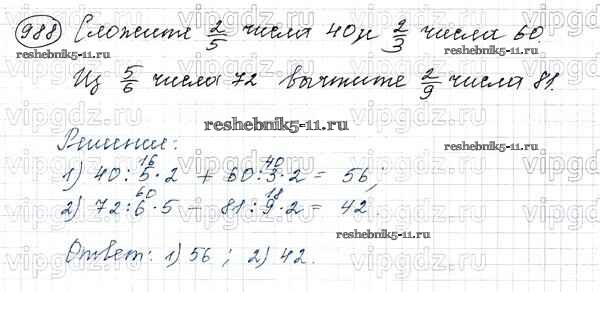 988 Сложите 2/5 числа 40 и 2/3 числа 60.
reshebnik5-11.ru
Из 5/6 числа 72 вычтите 2/9 числа 81.
reshebnik5-11.ru
Решение:
reshebnik5-11.ru
16 40
1) 40:5·2 + 60:3·2 = 56;
60 18
2) 72:6·5 − 81:9·2 = 42
reshebnik5-11.ru
Ответ: 1) 56; 2) 42.
vipgdz.ru